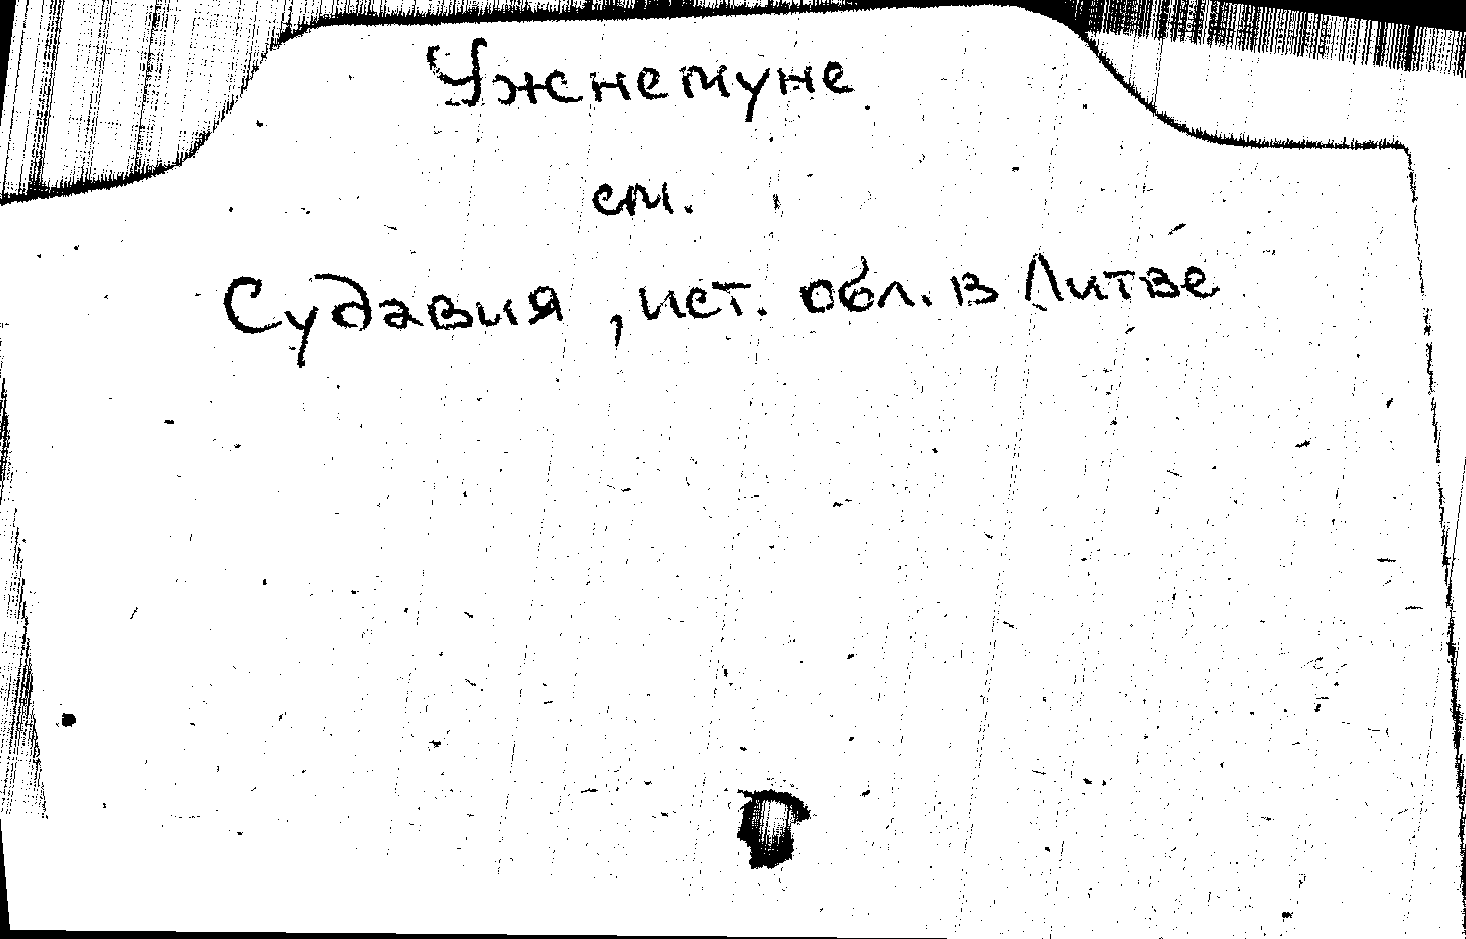 Ужнемуне
см.
Судавия, ист. обл. в Литве